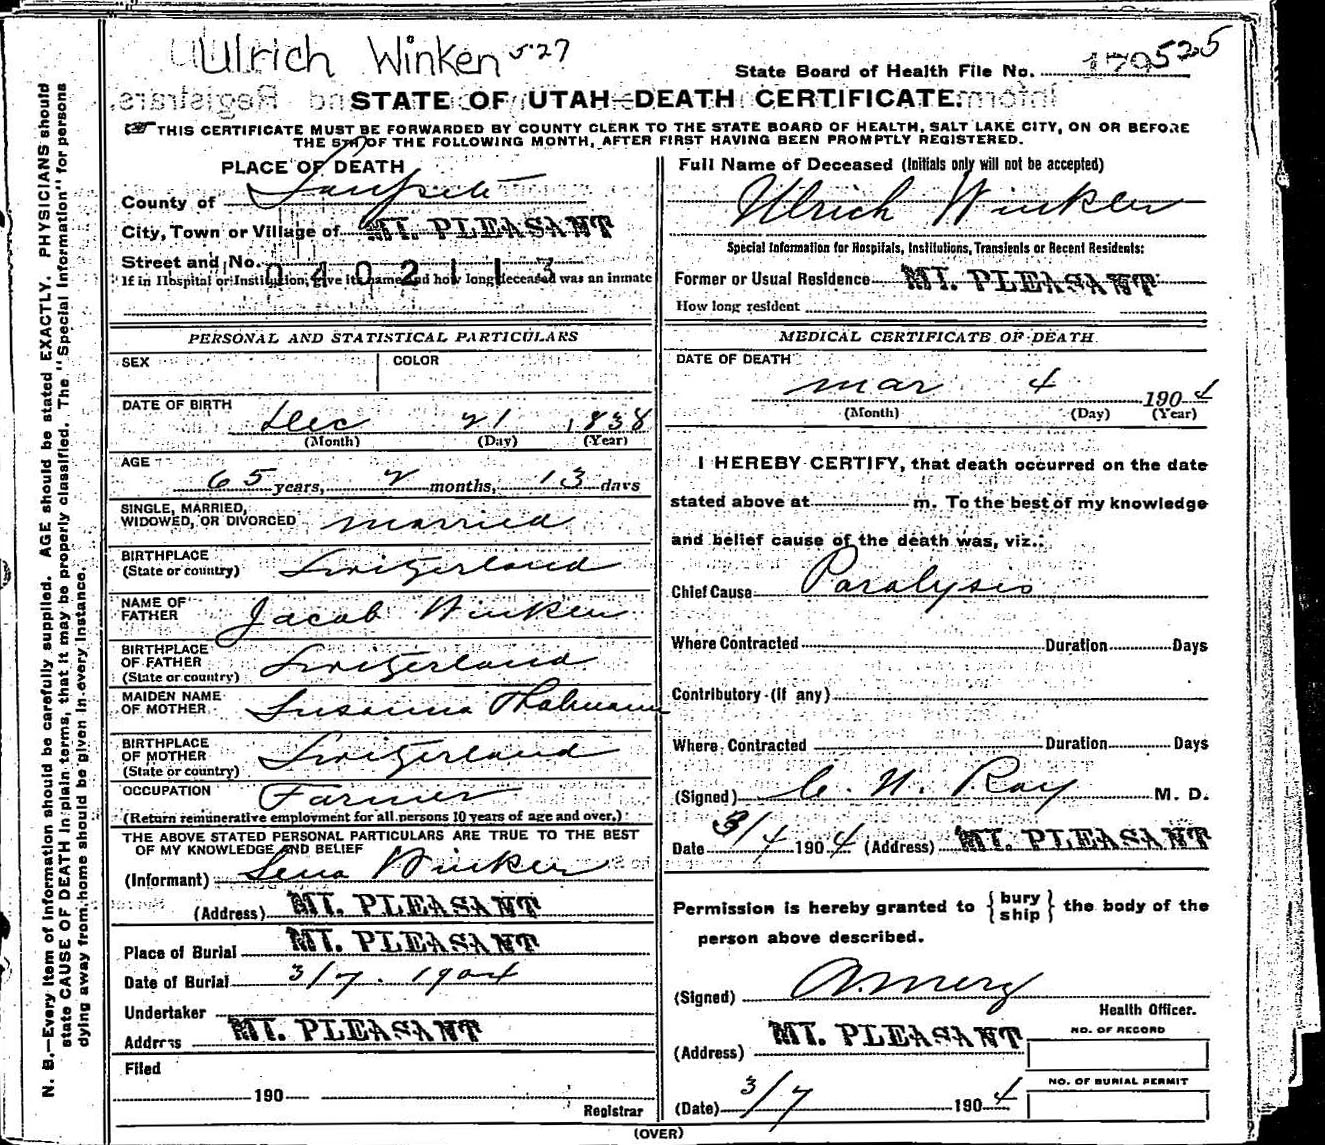 Ulrich Winken 527
State Board of Health File No. 170525
STATE OF UTAH—DEATH CERTIFICATE.
THIS CERTIFICATE MUST BE FORWARDED BY COUNTY CLERK TO THE STATE BOARD OF HEALTH, SALT LAKE CITY, ON OR BEFORE
THE 5TH OF THE FOLLOWING MONTH, AFTER FIRST HAVING BEEN PROMPTLY REGISTERED.
PLACE OF DEATH
County of Sanpete
City, Town or Village of MT. PLEASANT
Street and No.
0402113
If in Hospital or Institution, give its name and how long deceased was an inmate
Full Name of Deceased (Initials only will not be accepted)
Ulrich Winkler
Special Information for Hospitals, Institutions, Transients or Recent Residents:
Former or Usual Residence MT. PLEASANT
How long resident
PERSONAL AND STATISTICAL PARTICULARS
SEX
COLOR
DATE OF BIRTH
Dec 21 1838
(Month) (Day) (Year)
AGE
65 years, 2 months, 13 days
SINGLE, MARRIED,
WIDOWED, OR DIVORCED married
BIRTHPLACE
(State or country) Switzerland
NAME OF
FATHER Jacob Winkler
BIRTHPLACE
OF FATHER
(State or country) Switzerland
MAIDEN NAME
OF MOTHER Susanna Thalmann
BIRTHPLACE
OF MOTHER
(State or country) Switzerland
OCCUPATION Farmer
(Return remunerative employment for all persons 10 years of age and over.)
THE ABOVE STATED PERSONAL PARTICULARS ARE TRUE TO THE BEST
OF MY KNOWLEDGE AND BELIEF
(Informant) Lena Winkler
(Address) MT. PLEASANT
Place of Burial MT. PLEASANT
Date of Burial 3/7. 1904
Undertaker
Address MT. PLEASANT
Filed
190
Registrar
MEDICAL CERTIFICATE OF DEATH
DATE OF DEATH
Mar 4 1904
(Month) (Day) (Year)
I HEREBY CERTIFY, that death occurred on the date
stated above at m. To the best of my knowledge
and belief cause of the death was, viz.:
Chief Cause Paralysis
Where Contracted Duration Days
Contributory (If any)
Where Contracted Duration Days
(Signed) C. N. Ray M. D.
Date 3/4 1904 (Address) MT. PLEASANT
Permission is hereby granted to { bury
ship } the body of the
person above described.
(Signed) A. Merz
Health Officer.
MT. PLEASANT
(Address)
NO. OF RECORD
NO. OF BURIAL PERMIT
(Date) 3/7 1904
(OVER)
N. B.—Every item of information should be carefully supplied. AGE should be stated EXACTLY. PHYSICIANS should
state CAUSE OF DEATH in plain terms, that it may be properly classified. The "Special Information" for persons
dying away from home should be given in every instance.